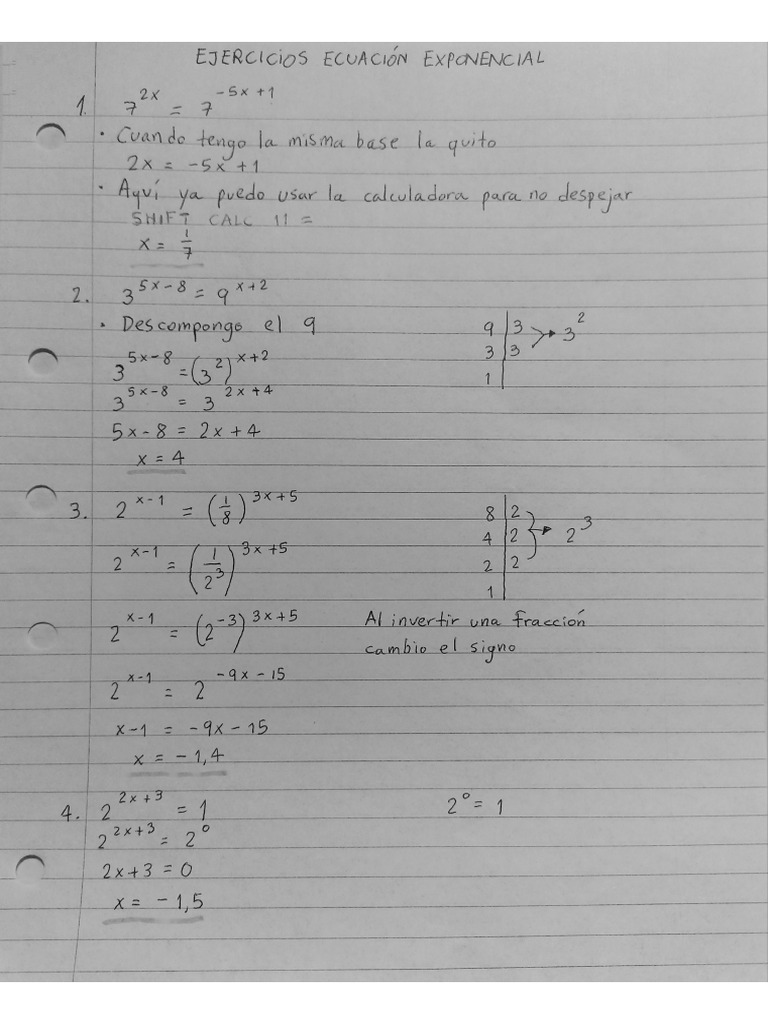 EJERCICIOS ECUACIÓN EXPONENCIAL
1. 7^(2x) = 7^(-5x+1)
• Cuando tengo la misma base la quito
2x = -5x +1
• Aquí ya puedo usar la calculadora para no despejar
SHIFT CALC 11 =
x = 1/7
2. 3^(5x-8) = 9^(x+2)
• Descompongo el 9
9 | 3
3 | 3 → 3^2
1 |
3^(5x-8) = (3^2)^(x+2)
3^(5x-8) = 3^(2x+4)
5x-8 = 2x+4
x = 4
3. 2^(x-1) = (1/8)^(3x+5)
8 | 2
4 | 2 → 2^3
2 | 2
1 |
2^(x-1) = (1/2^3)^(3x+5)
2^(x-1) = (2^-3)^(3x+5)
Al invertir una fracción
cambio el signo
2^(x-1) = 2^(-9x-15)
x-1 = -9x-15
x = -1,4
4. 2^(2x+3) = 1
2^0 = 1
2^(2x+3) = 2^0
2x+3 = 0
x = -1,5